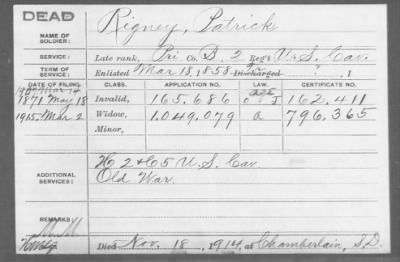 DEAD
NAME OF SOLDIER: Rigney, Patrick
SERVICE: Late rank, Pri Co. D. 2 Reg't U.S. Cav.
TERM OF SERVICE: Enlisted Mar 18, 1858 Discharged ?, 1
DATE OF FILING. CLASS. APPLICATION NO. LAW. CERTIFICATE NO.
Mar 14 Age
1871 May 18 Invalid, 165,686 J 162,411
1915. Mar 2 Widow, 1,049,079 a 796,365
Minor,
ADDITIONAL SERVICES: H 2 & C 5 U.S. Cav
Old War.
REMARKS:
Died Nov. 18, 1914, at Chamberlain, S.D.